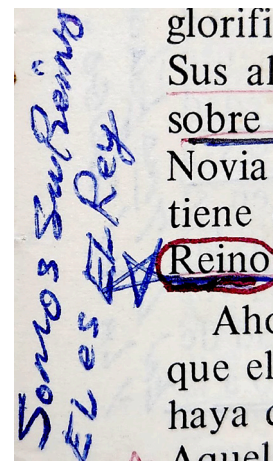 Somos Su Reino
EL es EL Rey
glorifi
Sus al
sobre
Novia
tiene
Reino
Aho
que el
haya
Aquel